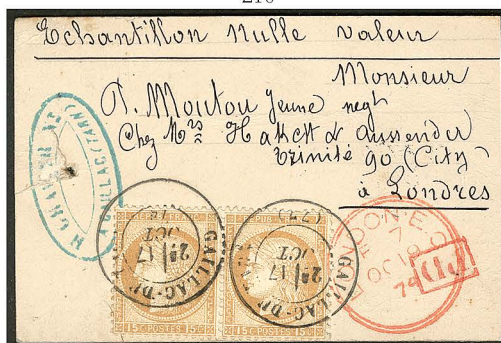 210
Echantillon nulle valeur
Monsieur
P. Moutou Jeune negt
Chez Mrs Hakett & Aussender
trinité 90 (City)
à Londres
GAILLAC (TARN)
GAILLAC-DU-
2E/17
OCT
74
REPUB
15 C POSTES 15 C
GAILLAC-DU-
(77)
2E/17
OCT
15 C POSTES 15 C
LONDON·E.C
7
OC 19
74
PD